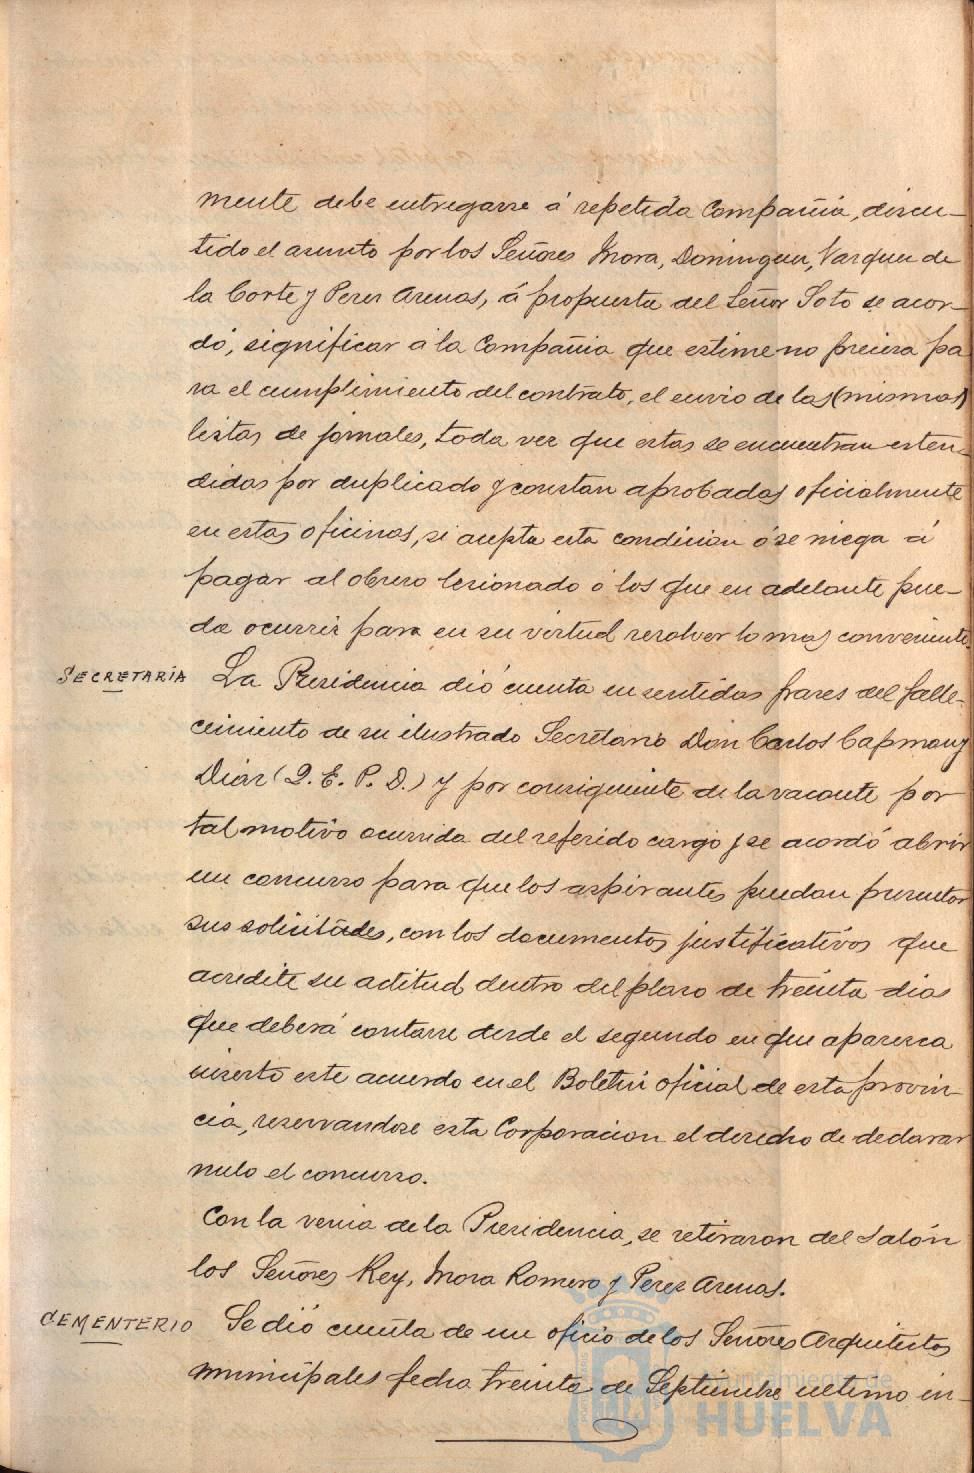 mente debe entregarse á repetida Compañia, discu-
tido el asunto por los Señores Mora, Dominguez, Vazquez de
la Corte y Perez Arenas, á propuesta del Señor Soto se acor-
dó, significar á la Compañia que estime no precisa pa
ra el cumplimiento del contrato, el envio de las (mismas)
listas de jornales, toda vez que estas se encuentran esten-
didas por duplicado y constan aprobadas oficialmente
en estas oficinas, si acepta esta condicion ó se niega á
pagar al obrero lesionado ó los que en adelante pue-
da ocurrir para en su virtud resolver lo mas conveniente.
SECRETARÍA
La Presidencia dió cuenta en sentidas frases del falle-
cimiento de su ilustrado Secretario Don Carlos Capmany
Diaz (Q. E. P. D.) y por consiguiente de la vacante por
tal motivo ocurrida del referido cargo y se acordó abrir
un concurso para que los aspirantes puedan presentar
sus solicitudes, con los documentos justificativos que
acredite su actitud dentro del plazo de treinta dias
que deberá contarse desde el segundo en que aparezca
inserto este acuerdo en el Boletin oficial de esta provin-
cia, reservandose esta Corporacion el derecho de declarar
nulo el concurso.
Con la venia de la Presidencia, se retiraron del salón
los Señores Rey, Mora Romero y Perez Arenas.
CEMENTERIO
Se dió cuenta de un oficio de los Señores Arquitectos
municipales fecha treinta de Septiembre ultimo in-
Ayuntamiento de
HUELVA